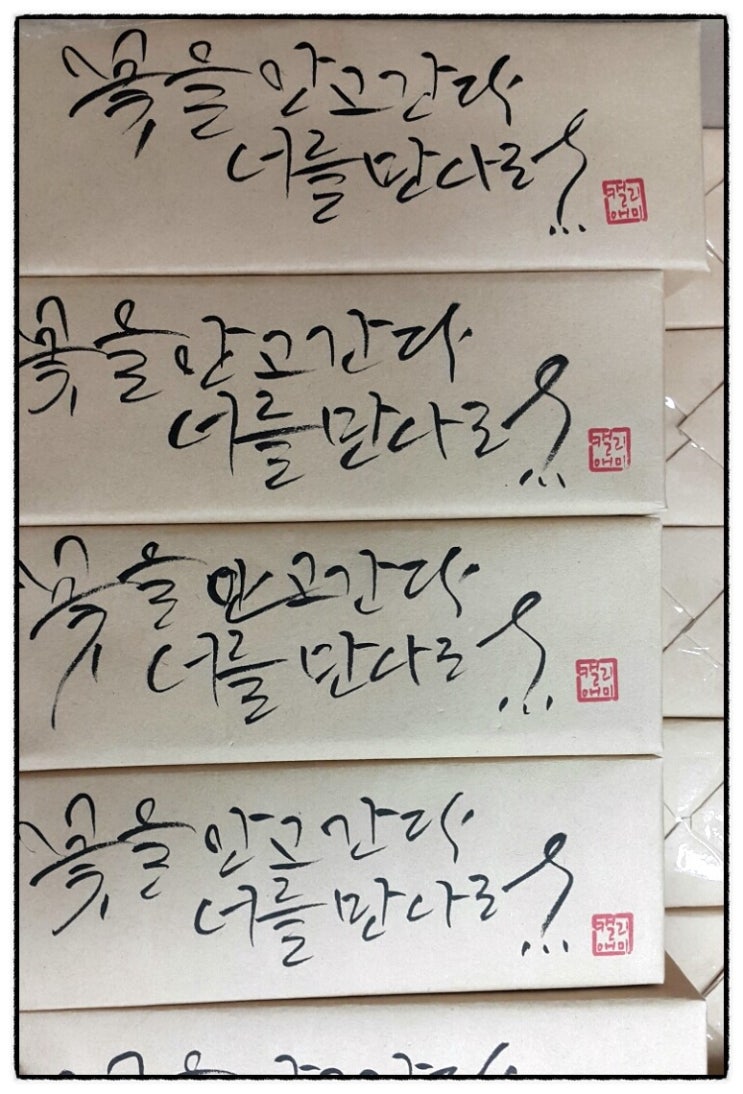 꽃을 안고간다
너를 만나러...
캘리
애미
꽃을 안고간다
너를 만나러...
캘리
애미
꽃을 안고간다
너를 만나러...
캘리
애미
꽃을 안고간다
너를 만나러...
캘리
애미